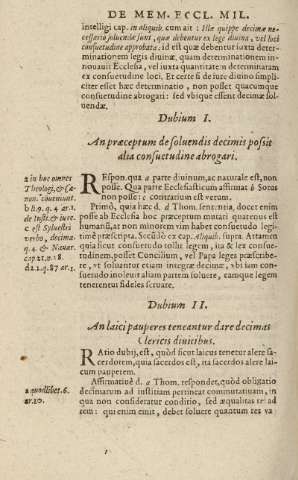 DE MEM. ECCL. MIL.
intelligi cap. in aliquib. cum ait: Illæ quippe decimæ necessario soluendæ sunt, quæ debentur ex lege diuina, vel loci consuetudine approbata. id est quæ debentur iuxta determinationem legis diuinæ, quam determinationem innouauit Ecclesia, vel iuxta quantitatem determinatam ex consuetudine loci. Et certe si de iure diuino simpliciter esset hæc determinatio, non posset quacumque consuetudine abrogari: sed vbique essent decimæ soluendæ.
Dubium I.
An præceptum de soluendis decimis possit
alia consuetudine abrogari.
a in hoc omnes
Theologi, & Canon. conueniunt
b 8.9. q.4 ar.1.
de iusti. & iure.
c est Syluestri
verbo, decima.
q.4. & Nauar.
cap 21. n. 28.
d 2.2. q. 87 ar.
REspon. qua a parte diuinum, ac naturale est, non
posse. Qua parte Ecclesiasticum affirmat b Sotus
non posse: c contrarium est verum.
Primò, quia hæc d. d Thom. sententia, docet enim
posse ab Ecclesia hoc præceptum mutari quatenus est
humanū, at non minorem vim habet consuetudo legitimè præscripta. Secūdò ex cap. Aliquib. supra. Attamen
quia sicut consuetudo tollit legem, ita & lex consuetudinem, posset Concilium, vel Papa leges præscribere, vt soluantur etiam integræ decimæ, vbi iam consuetudo inoleuit aliam partem soluere, eamque legem
tenerentur fideles seruare.
Dubium II.
An laici pauperes teneantur dare decimas
Clericis diuitibus.
RAtio dubij, est, quòd sicut laicus tenetur alere sacerdotem, quia sacerdos est, ita sacerdos alere laicum pauperem.
a quodlibet. 6.
ar. 10.
Affirmatiuè d. a Thom. respondet, quòd obligatio
decimarum ad iustitiam pertineat commutatiuam, in
qua non consideratur conditio, sed æqualitas rei ad
rem: qui enim emit, debet soluere quantum res va